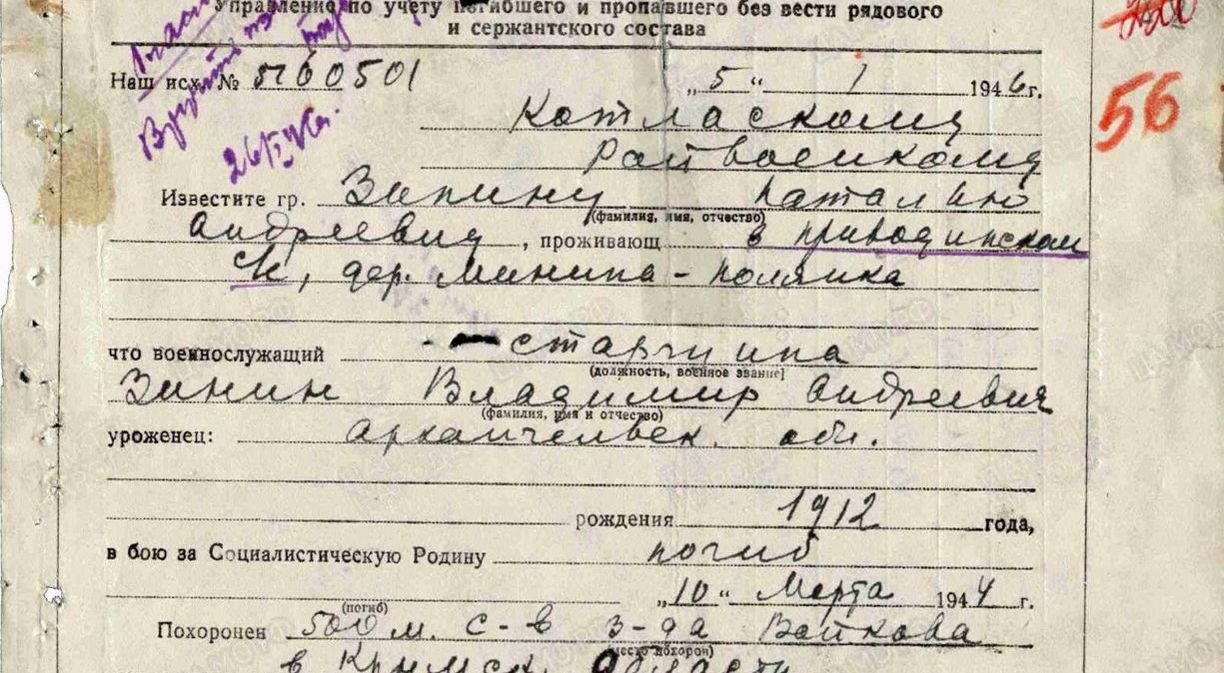 Управление по учету погибшего и пропавшего без вести рядового
и сержантского состава
200
Наш исх. № 5160501 „5“ 1 1946г.
56
Котласкому
Райвоенкому
26/I 46г.
Известите гр. Зинину Наталью
(фамилия, имя, отчество)
Андреевну, проживающ в приводинском
с/с, дер. Минина-полянка
что военнослужащий старшина
(должность, военное звание)
Зинин Владимир Андреевич
(фамилия, имя и отчество)
уроженец: Архангельск. обл.
рождения 1912 года,
в бою за Социалистическую Родину погиб
„10“ Марта 1944 г.
(погиб)
Похоронен 500 м. с-в з-да Войкова
(место похорон)
в Крымск. области